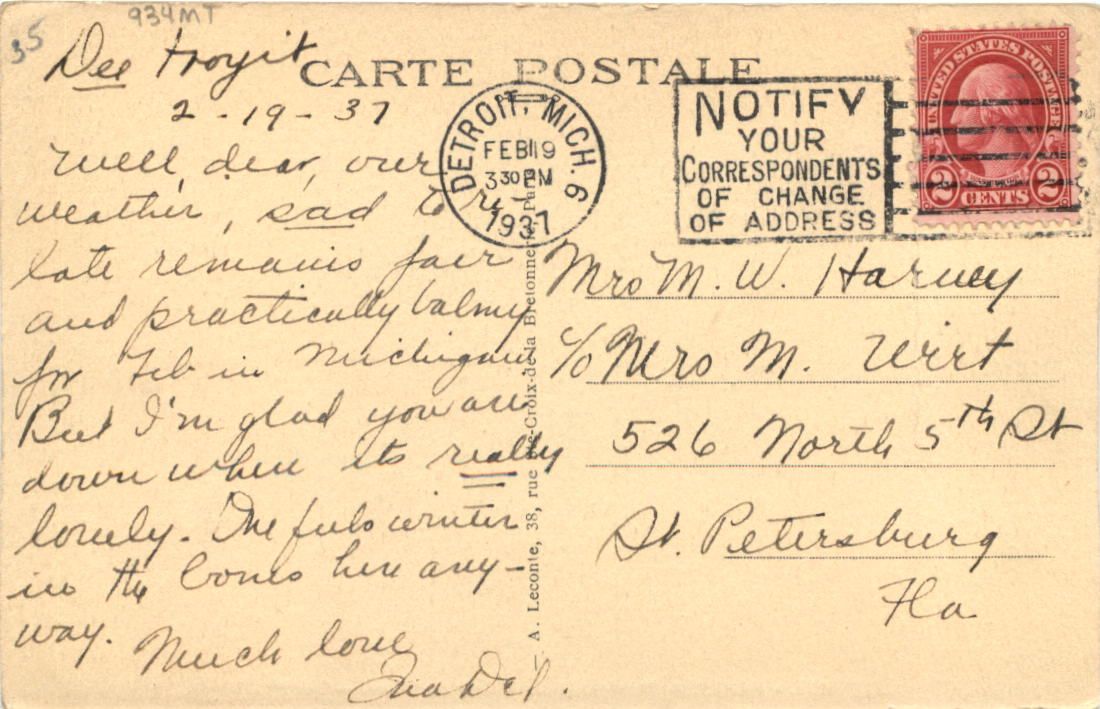 934MT
35
Dee Troyit
CARTE POSTALE
2-19-37
Well, dear, our
weather, sad to
late remains fair
and practically balmy
for Feb in Michigan
But I'm glad you are
down where its really
lovely. One feels winter
in the bones here any-
way.
Much love
DETROIT, MICH. 6
FEB 19
3 30 PM
1937
NOTIFY
YOUR
CORRESPONDENTS
OF CHANGE
OF ADDRESS
UNITED STATES POSTAGE
2 CENTS 2
A. Leconte, 38, rue Ste-Croix-de-la Bretonne
Mrs M. W. Harvey
c/o Mrs M. Wirt
526 North 5th St
St. Petersburg
Fla